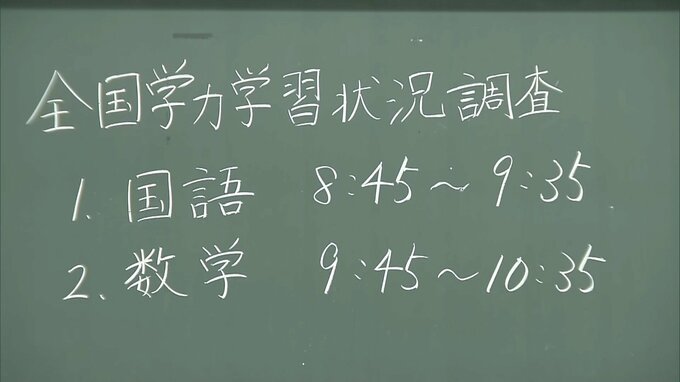 全国学力学習状況調査
1. 国語 8:45～9:35
2. 数学 9:45～10:35